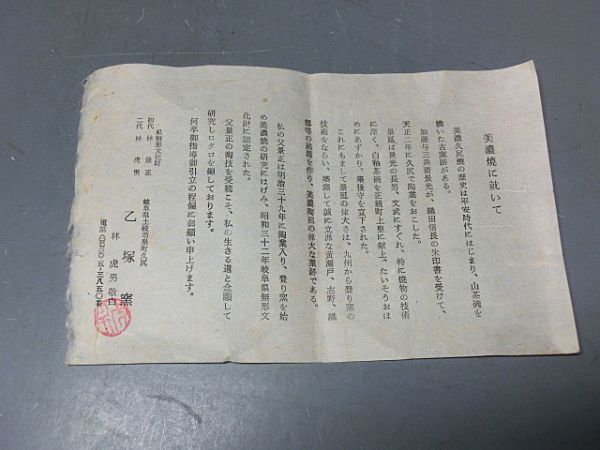 美濃焼に就いて
美濃久尻焼の歴史は平安時代にはじまり、山茶碗を
焼いた古窯跡がある。
加藤与三兵衛景光が、織田信長の朱印書を受けて、
天正二年に久尻で陶業をおこした。
景延は景光の長男、文武にすぐれ、特に焼物の技術
に深く、白釉茶碗を正親町上皇に献上、たいそうおほ
めにあずかり、筑後守を宣下された。
これにもまして景延の偉大さは、九州から登り窯の
技術をならい、築窯して誠に立派な黄瀬戸、志野、織
部等の名器を作り、美濃陶祖の偉大な業跡である。
私の父景正は明治三十九年に陶業入り、登り窯を始
め美濃焼の研究にはげみ、昭和三十二年岐阜県無形文
化財に認定された。
父景正の陶技を受続こそ、私の生きる道と念願して
研究しロクロを廻しております。
何卒御指導御引立の程偏に御願い申上げます。
県無形文化財
初代 林 景正
二代 林 虎男
岐阜県土岐市泉町久尻
乙塚窯
林 虎男 敬白